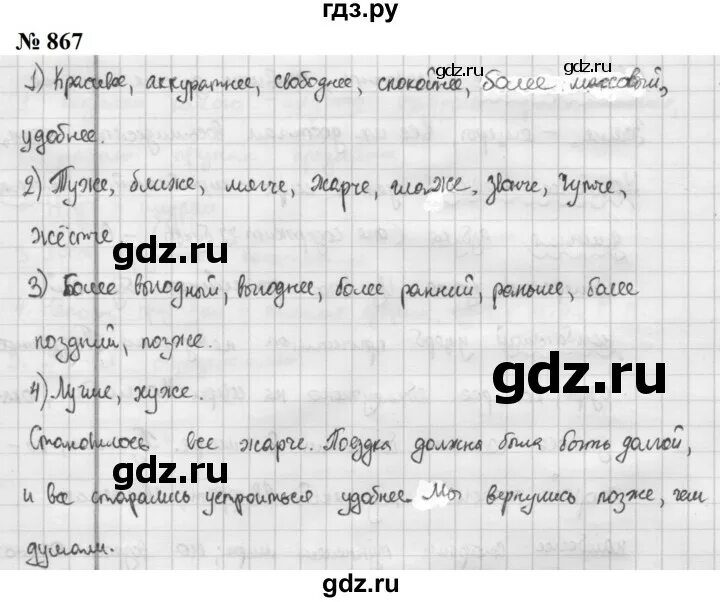 гдз.ру
№ 867
1) Красивее, аккуратнее, свободнее, спокойнее, более массовый,
удобнее.
2) Туже, ближе, мягче, жарче, глаже, звонче, чутче,
жёстче.
gdz.ru
3) Более выгодный, выгоднее, более ранний, раньше, более
поздний, позже.
gdz.ru
4) Лучше, хуже.
Становилось все жарче. Поездка должна была быть долгой,
gdz.ru
и все старались устроиться удобнее. Мы вернулись позже, чем
думали.
gdz.ru